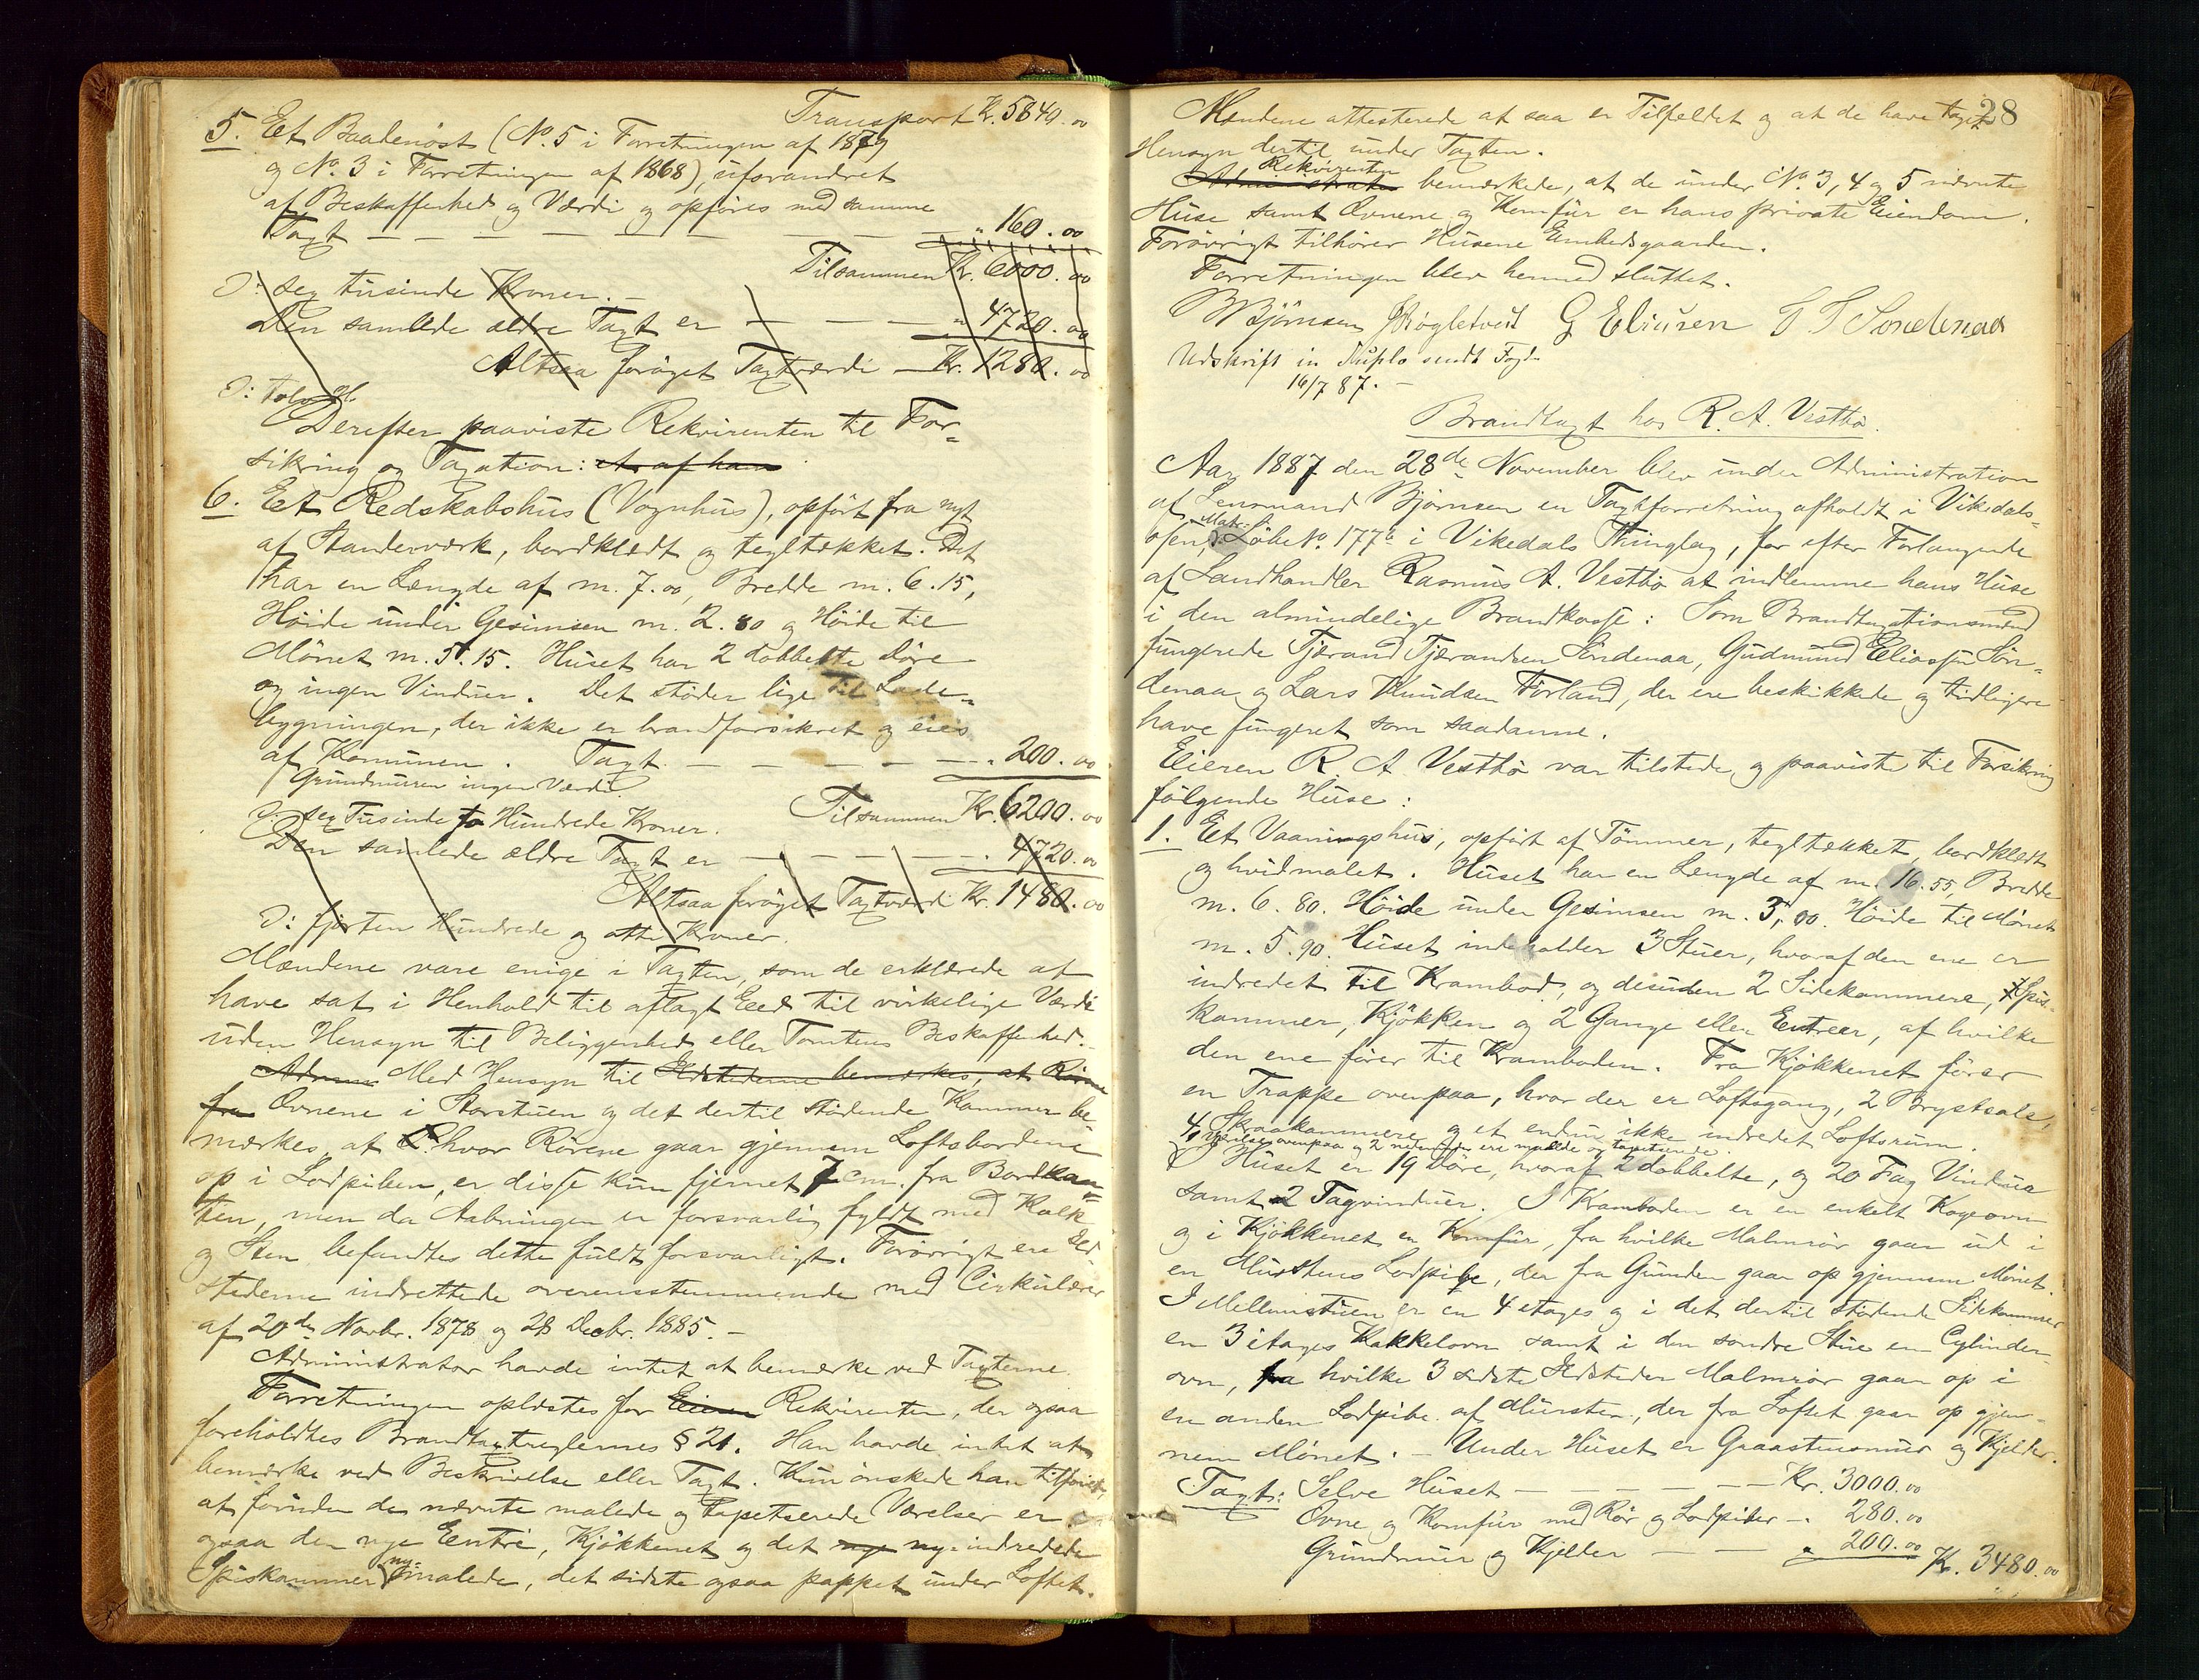 Transport Kr. 5840.00
5. Eet Baadenöst (No. 5 i Forretningen af 1879
og No. 3 i Forretningen af 1868), uforandret
af Beskaffenhed og Værdi og opföres med samme
Taxt — — — — — — — " 160.00
Tilsammen Kr. 6000.00
ɔ: sex tusinde Kroner. —
Den samlede ældre Taxt er — — — — " 4720.00
Altsaa foröget Taxtværdi — Kr. 1280.00
ɔ: tolv H.
Derefter paaviste Rekvirenten til For-
sikring og Taxation: At af han
6. Eet Redskabshus (Vognhus), opfört fra nyt
af Standerværk, bordklædt og tegltækket. Det
har en Længde af m. 7.00, Bredde m. 6.15,
Höide under Gesimsen m. 2.80 og Höide til
Mönet m. 5.15. Huset har 2 dobbelte Döre
og ingen Vinduer. Det støder lige til Lade-
bygningen, der ikke er brandforsikret og eies
af Komunen. Taxt — — — — — " 200.00
Grundmuren ingen Værdi.
Tilsammen Kr. 6200.00
ɔ: sex Tusinde to Hundrede Kroner.
Den samlede ældre Taxt er — — — — " 4720.00
Altsaa foröget Taxtværdi Kr. 1480.00
ɔ: fjorten Hundrede og otti Kroner.
Mændene vare enige i Taxten, som de erklærede at
have sat i Henhold til aflagt Eed til virkelige Værdi
uden Hensyn til Beliggenhed eller Tomtens Beskaffenhed. —
Admin Med Hensyn til Ildstederne bemærkes, at Rörene
fra Ovnene i Storstuen og det dertil stödende Kammer be-
mærkes, at hvor Rörene gaar gjennem Loftsbordene
op i Lodpiben, er disse kun fjernet 7 cm. fra Bordkan-
ten, men da Aabningen er forsvarlig fyldt med Kalk
og Sten befandtes dette fuldt forsvarligt. Forövrigt ere Ild-
stederne indrettede overensstemmende med Cirkulærer
af 20de Novbr. 1878 og 28 Decbr. 1885. —
Administrator havde intet at bemærke ved Taxterne.
Forretningen oplæstes for Eieren Rekvirenten, der ogsaa
foreholdtes Brandtaxtreglernes § 21. Han havde intet at
bemærke ved Beskrivelse eller Taxt. Kun önskede han tilföiet,
at foruden de nævnte malede og tapetserede Værelser er
ogsaa den nye Eentré, Kjökkenet og det nye ny-indredede
Spiskammer ny-malede, det sidste ogsaa pappet under Loftet.
28
Mændene attesterede at saa er Tilfeldet og at de have taget
Hensyn dertil under Taxten.
Rekvirenten
Administrator bemærkede, at de under No. 3, 4 og 5 nævnte
Huse samt Ovnene og Komfur er hans private Eiendom.
Forövrigt tilhörer Husene Embedsgaarden.
Forretningen blev hermed sluttet.
B Björnsen G Eliasen T T Söndenaa
Udskrift in duplo sendt Fogd.
16/7 87. —
Brandtaxt hos R. A. Vestbö.
Aar 1887 den 28de November blev under Administration
af Lensmand Björnsen en Taxtforretning afholdt i Vikedals-
Matr.
ösen, Löbe No. 177b i Vikedals Thinglag, for efter Forlangende
af Landhandler Rasmus A. Vestbö at indlemme hans Huse
i den almindelige Brandkasse: Som Brandtaxationsmænd
fungerede Tjærand Tjærandsen Söndenaa, Gudmund Eliassen Sön-
denaa og Lars Knudsen Förland, der ere beskikkede og tidligere
have fungeret som saadanne.
Eieren R. A. Vestbö var tilstede og paaviste til Forsikring
fölgende Huse:
1. Eet Vaaningshus, opfört af Tömmer, tegltækket, bordklædt
og hvidmalet. Huset har en Længde af m. 16.55, Bredde
m. 6.80. Höide under Gesimsen m. 3,00. Höide til Mönet
m. 5.90. Huset indeholder 3 Stuer, hvoraf den ene er
indredet til Krambod, og desuden 2 Sidekammere, Spis-
kammer, Kjökken og 2 Gange eller Entreer, af hvilke
den ene förer til Kramboden. Fra Kjökkenet förer
en Trappe ovenpaa, hvor der er Loftsgang, 2 Brystsale,
4 Skraakammere og et endnu ikke indredet Loftsrum.
4 Værelser ovenpaa og 2 nedenunder ere malede og tapetserede.
I Huset er 19 Döre, hvoraf 2 dobbelte, og 20 Fag Vinduer
samt 2 Tagvinduer. I Kramboden er en enkelt Kogeovn
og i Kjökkenet en Komfur, fra hvilke Malmrör gaar ud i
en Murstens Lodpibe, der fra Grunden gaar op gjennem Mönet.
I Mellemstuen er en 4 etages og i det dertil stödende Sidekammer
en 3 etages Kakkelovn samt i den söndre Stue en Cylinder-
ovn, fra hvilke 3 sidste Ildsteder Malmrör gaar op i
en anden Lodpibe af Mursten, der fra Loftet gaar op gjen-
nem Mönet. — Under Huset er Graastensmur og Kjelder.
Taxt: Selve Huset — — — — — Kr. 3000.00
Ovne og Komfur med Rör og Lodpiber — " 280.00
Grundmur og Kjelder — — " 200.00 Kr. 3480.00